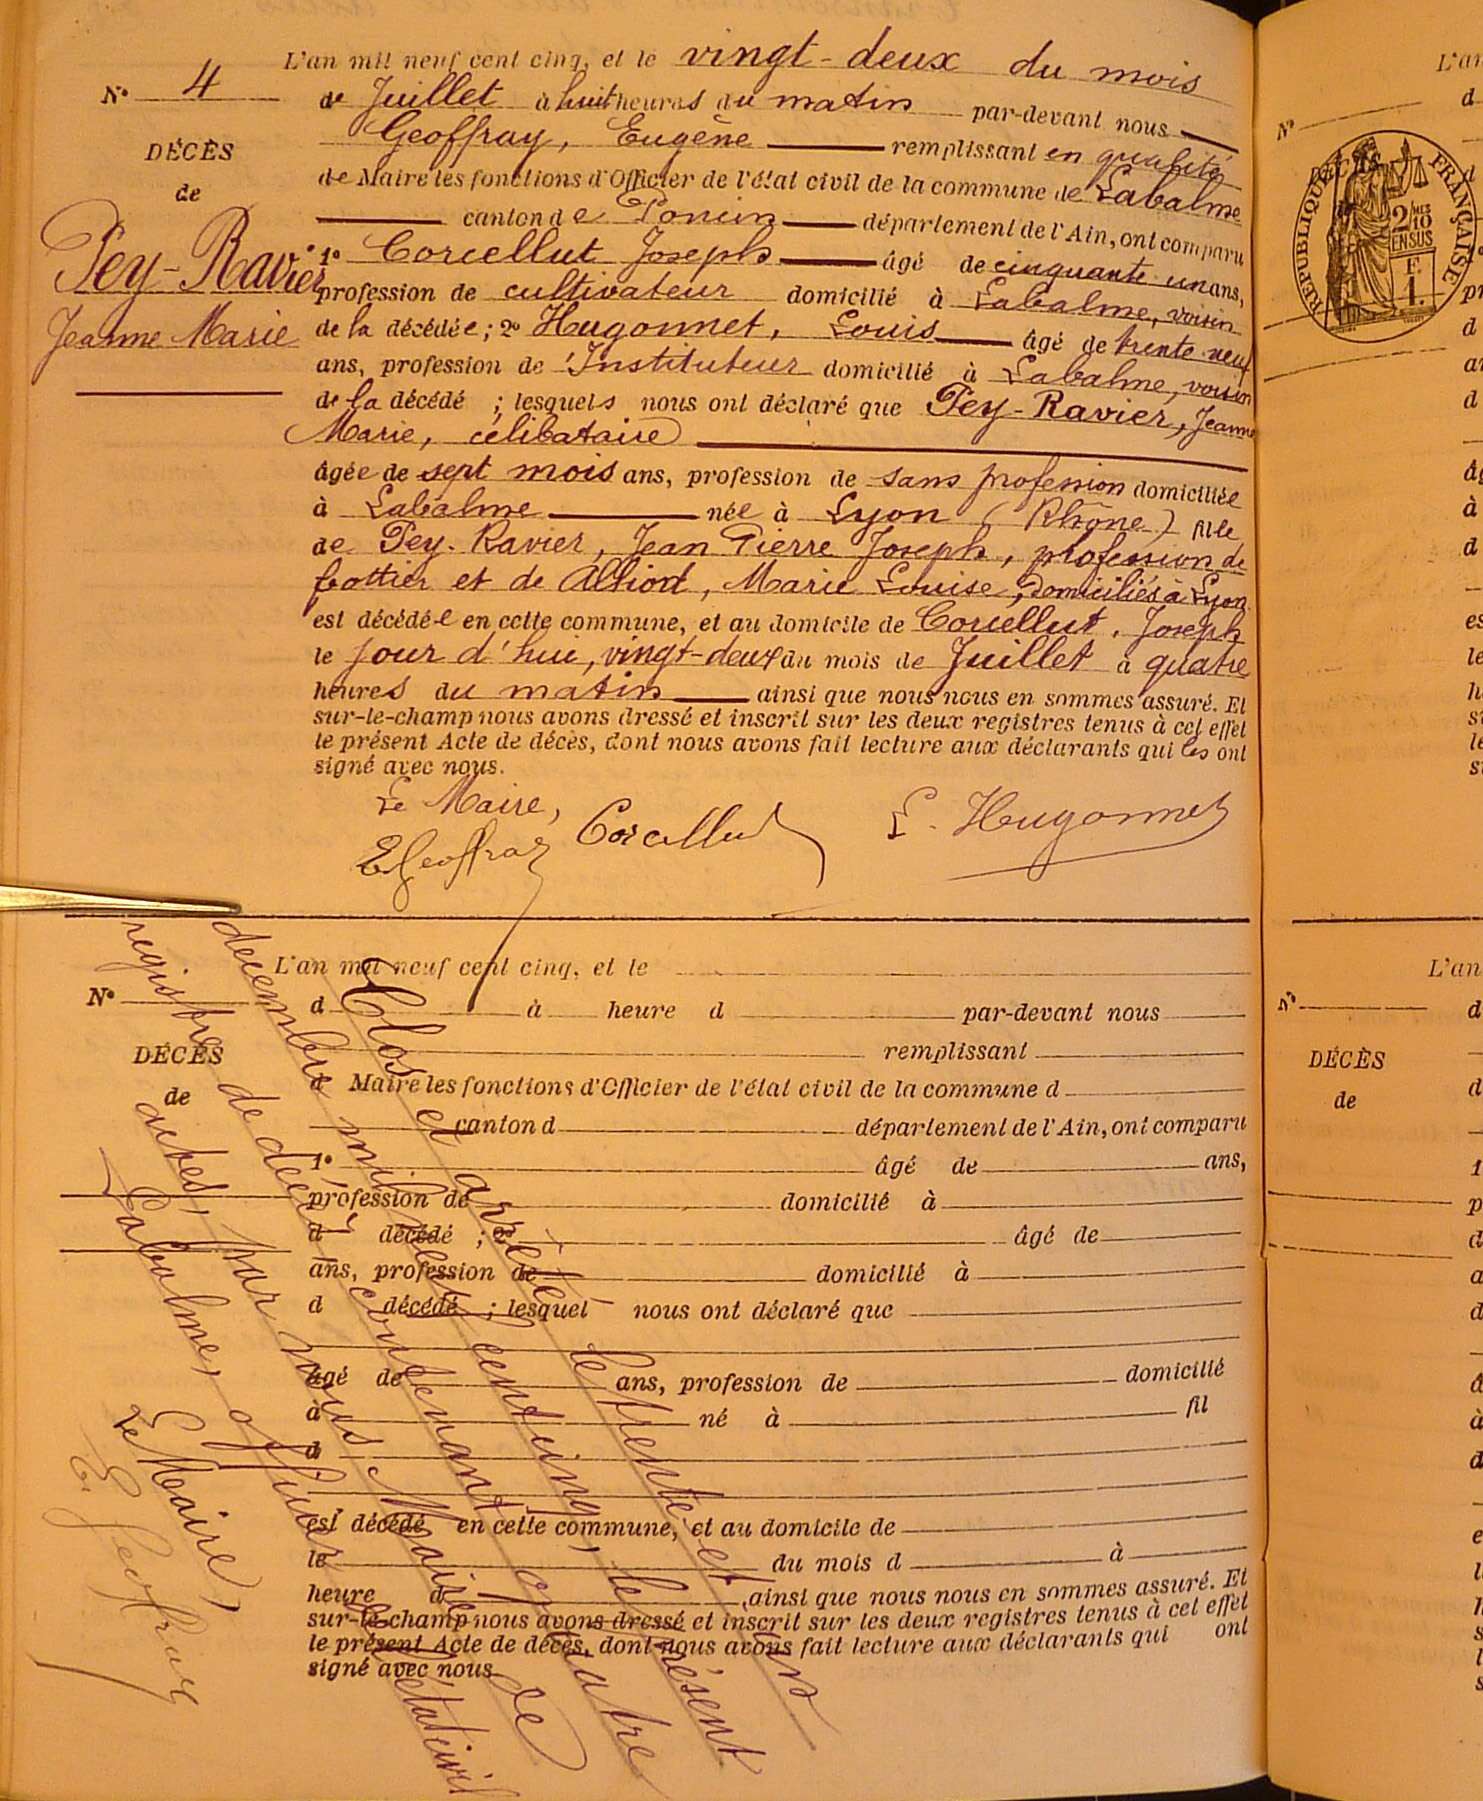 L'an mil neuf cent cinq, et le vingt-deux du mois
N° 4
de Juillet à huit heures du matin par-devant nous
Geoffray, Eugène remplissant en qualité
DÉCÈS
de Maire les fonctions d'Officier de l'état civil de la commune de Labalme
de
canton de Poncin département de l'Ain, ont comparu
Pey-Ravier
1° Corcellut Joseph âgé de cinquante un ans,
profession de cultivateur domicilié à Labalme, voisin
Jeanne Marie
de la décédée; 2° Hugonnet, Louis âgé de trente neuf
ans, profession de Instituteur domicilié à Labalme, voisin
de la décédé ; lesquels nous ont déclaré que Pey-Ravier, Jeanne
Marie, célibataire
âgée de sept mois ans, profession de sans profession domiciliée
à Labalme née à Lyon (Rhône) fille
de Pey-Ravier, Jean Pierre Joseph, profession de
et de Marie Louise, domiciliés à Lyon
est décédée en cette commune, et au domicile de Corcellut, Joseph
le jour d'hui, vingt-deux du mois de Juillet à quatre
heures du matin ainsi que nous nous en sommes assuré. Et
sur-le-champ nous avons dressé et inscrit sur les deux registres tenus à cet effet
le présent Acte de décès, dont nous avons fait lecture aux déclarants qui les ont
signé avec nous.
Le Maire,
E Geoffray Corcellut L. Hugonnet
L'an mil neuf cent cinq, et le
N°
d à heure d par-devant nous
remplissant
DÉCÈS
d Maire les fonctions d'Officier de l'état civil de la commune d
de
canton d département de l'Ain, ont comparu
1° âgé de ans,
profession de domicilié à
d décédé ; 2° âgé de
ans, profession de domicilié à
d décédé ; lesquel nous ont déclaré que
âgé de ans, profession de domicilié
à né à fil
d
est décédé en cette commune, et au domicile de
le du mois d à
heure d ainsi que nous nous en sommes assuré. Et
sur-le-champ nous avons dressé et inscrit sur les deux registres tenus à cet effet
le présent Acte de décès, dont nous avons fait lecture aux déclarants qui ont
signé avec nous
Clos et arrêté le trente et un
décembre mil neuf cent cinq, le présent
registre de décès contenant quatre
actes, par nous Maire de
Labalme, officier de l'état civil
Le Maire,
E. Geoffray
L'an
N°
RÉPUBLIQUE FRANÇAISE
2/10 MES
EN SUS
F.
1.
L'an
N°
DÉCÈS
de